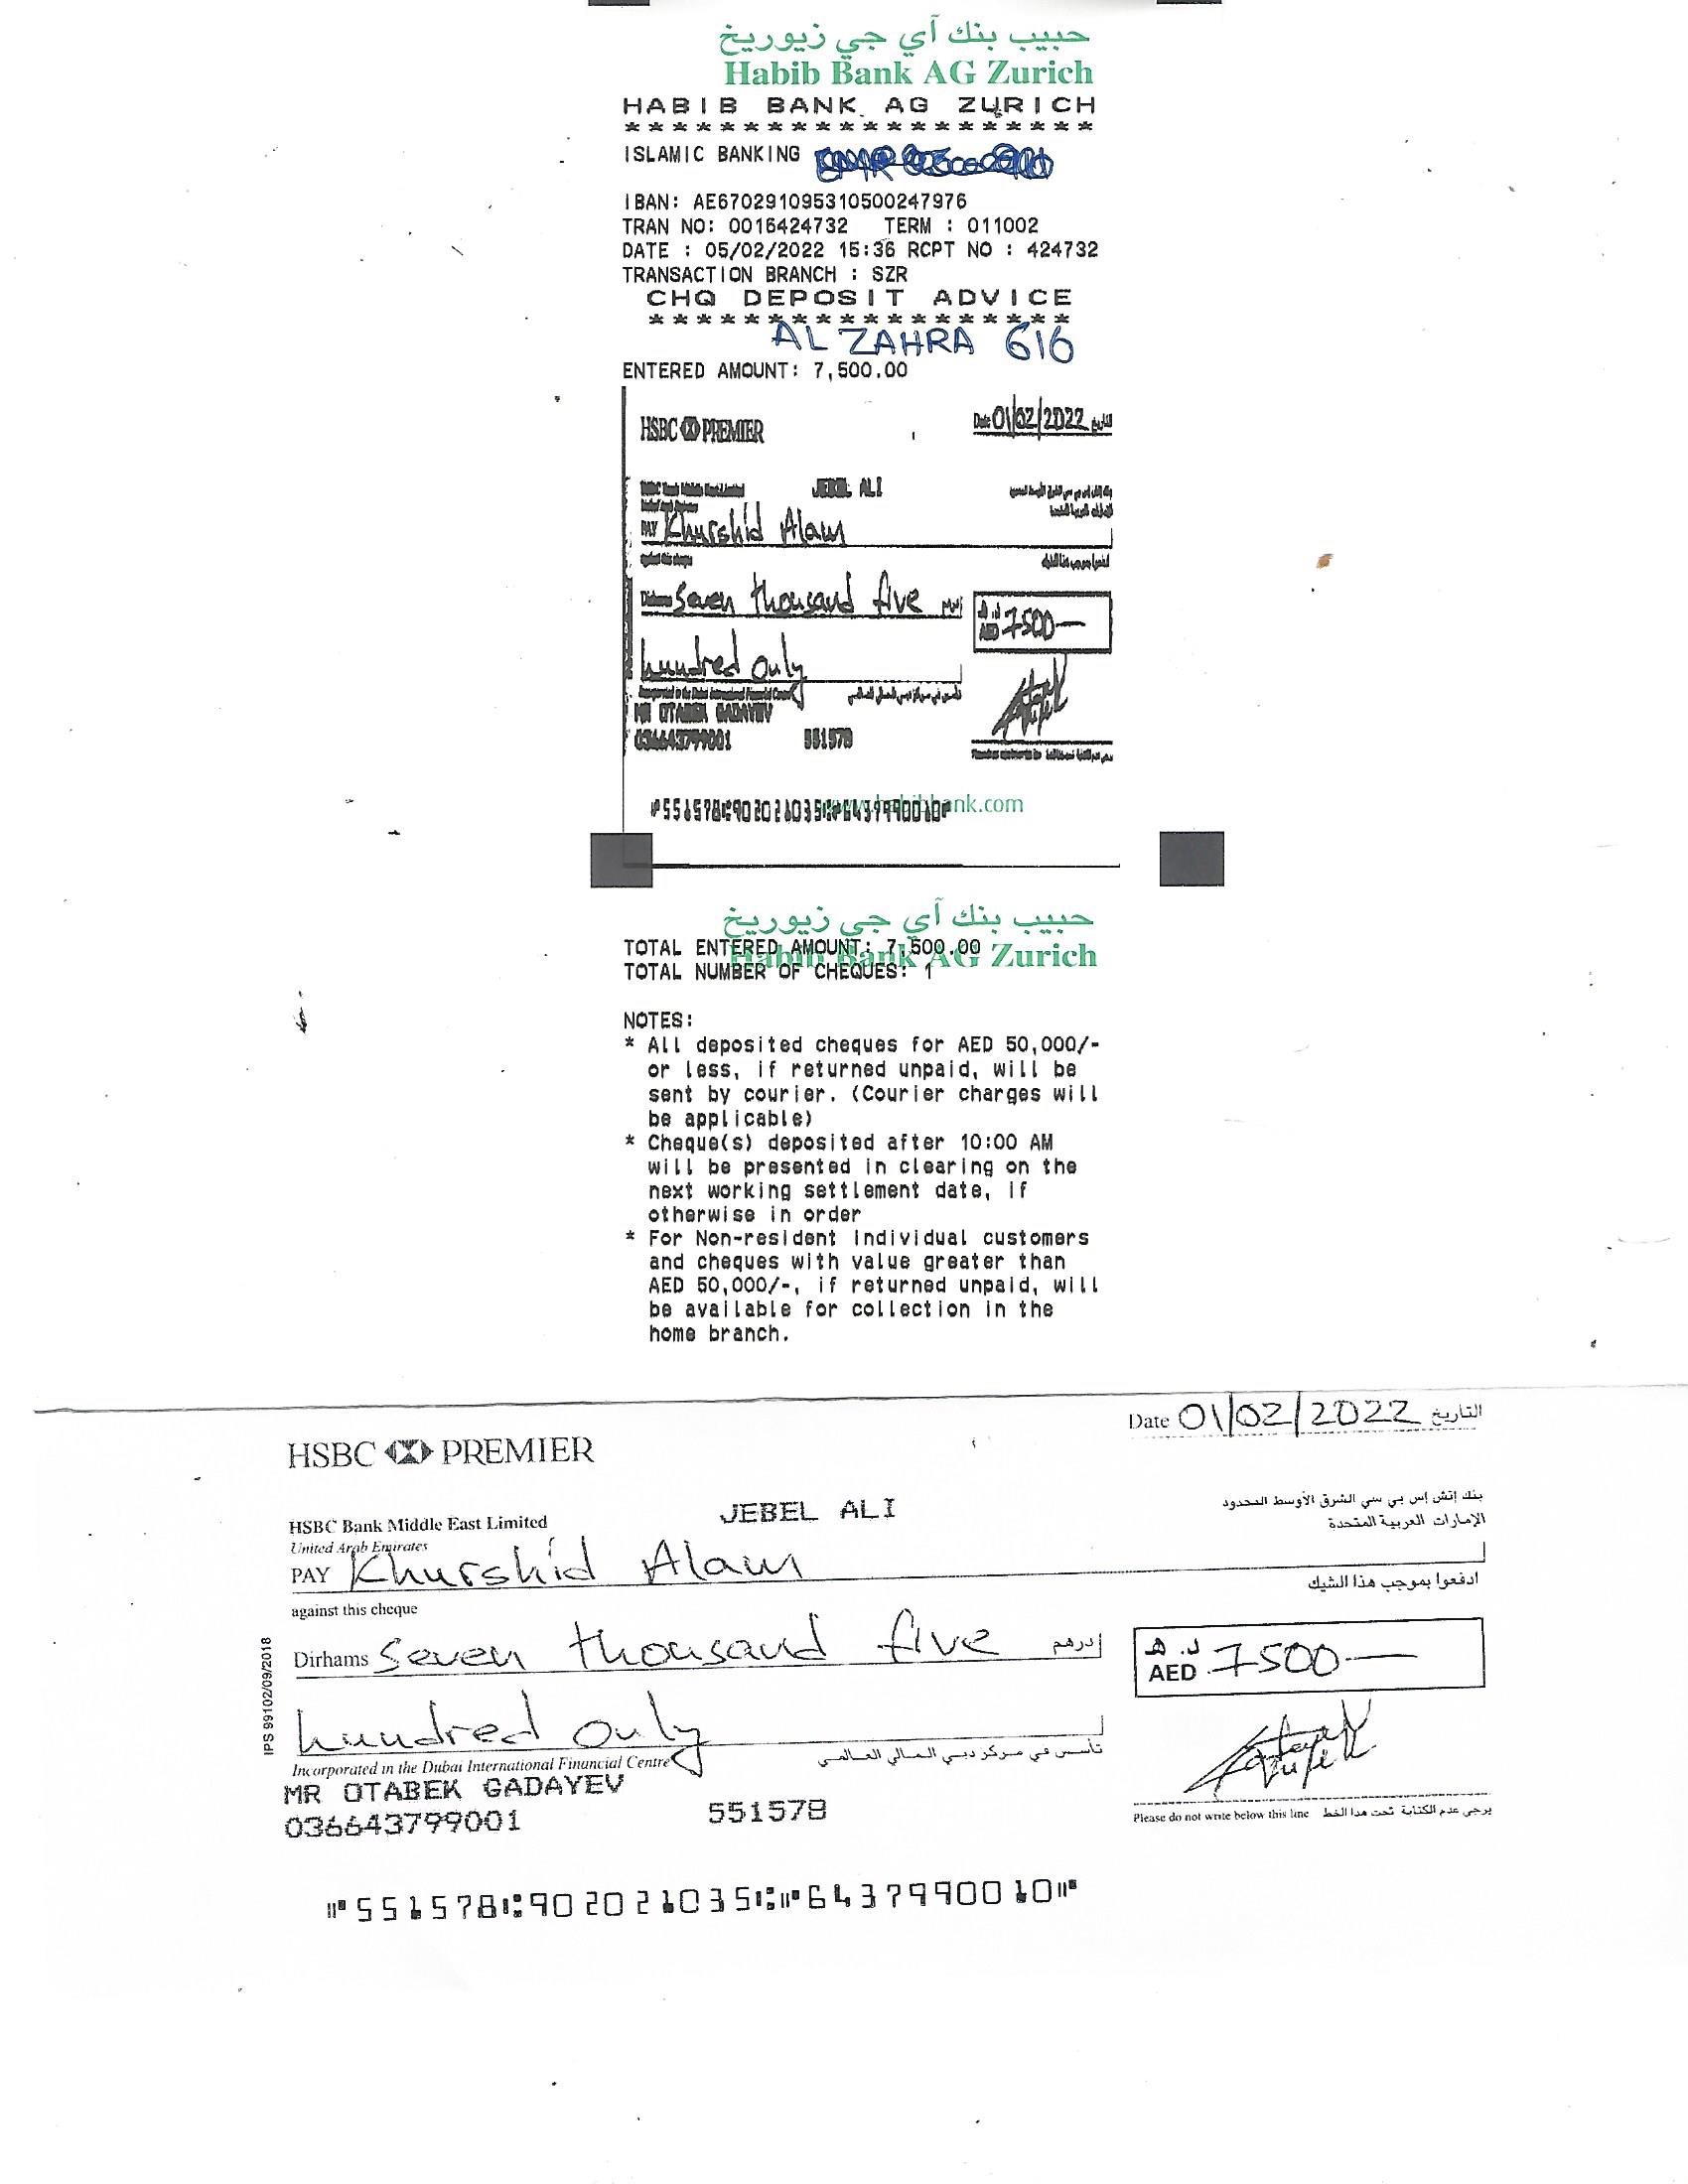 حبيب بنك آي جي زيوريخ
Habib Bank AG Zurich
HABIB BANK AG ZURICH
********************
ISLAMIC BANKING
IBAN: AE670291095310500247976
TRAN NO: 0016424732 TERM : 011002
DATE : 05/02/2022 15:36 RCPT NO : 424732
TRANSACTION BRANCH : SZR
CHQ DEPOSIT ADVICE
******************
AL ZAHRA 616
ENTERED AMOUNT: 7,500.00
HSBC PREMIER
Date 01/02/2022 التاريخ
JEBEL ALI
PAY Khurshid Alam
against this cheque
ادفعوا بموجب هذا الشيك
Dirhams Seven thousand five درهم
د.هـ AED 7500-
hundred only
Incorporated in the Dubai International Financial Centre تأسس في مركز دبي المالي العالمي
MR OTABEK GADAYEV
036643799001 551578
⑈551578⑆902021035⑆⑈6437990010⑈
www.habibbank.com
حبيب بنك آي جي زيوريخ
Habib Bank AG Zurich
TOTAL ENTERED AMOUNT: 7,500.00
TOTAL NUMBER OF CHEQUES: 1
NOTES:
* All deposited cheques for AED 50,000/-
or less, if returned unpaid, will be
sent by courier. (Courier charges will
be applicable)
* Cheque(s) deposited after 10:00 AM
will be presented in clearing on the
next working settlement date, if
otherwise in order
* For Non-resident Individual customers
and cheques with value greater than
AED 50,000/-, if returned unpaid, will
be available for collection in the
home branch.
Date 01/02/2022 التاريخ
HSBC PREMIER
JEBEL ALI
HSBC Bank Middle East Limited
بنك إتش إس بي سي الشرق الأوسط المحدود
United Arab Emirates
الإمارات العربية المتحدة
PAY Khurshid Alam
against this cheque
ادفعوا بموجب هذا الشيك
Dirhams Seven thousand five درهم
د.هـ
AED 7500-
IPS 99102/09/2018
hundred only
Incorporated in the Dubai International Financial Centre تأسس في مركز دبي المالي العالمي
MR OTABEK GADAYEV
036643799001 551578
Please do not write below this line يرجى عدم الكتابة تحت هذا الخط
⑈551578⑆902021035⑆⑈6437990010⑈